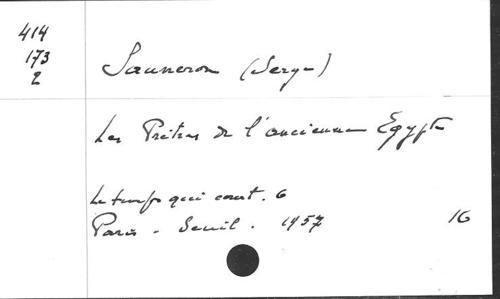 414
173
2
Sauneron (Serge)
Les Prêtres de l'ancienne Egypte
Le temps qui court. 6
Paris. Seuil. 1957 16